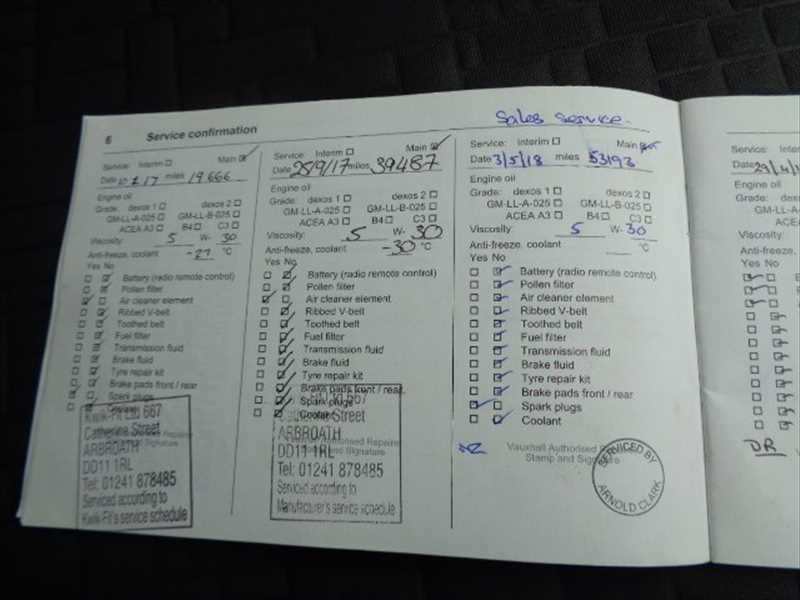 6 Service confirmation
Service: Interim Main
Date 17 miles 19.666
Engine oil
Grade: dexos 1 dexos 2
GM-LL-A-025 GM-LL-B-025
ACEA A3 B4 C3
Viscosity: 5 W- 30
Anti-freeze, coolant -27 °C
Yes No
Battery (radio remote control)
Pollen filter
Air cleaner element
Ribbed V-belt
Toothed belt
Fuel filter
Transmission fluid
Brake fluid
Tyre repair kit
Brake pads front / rear
Spark plugs
Kwik-Fit Ltd 667
Catherine Street
ARBROATH
DD11 1RL
Tel: 01241 878485
Serviced according to
Kwik-Fit's service schedule
Service: Interim Main
Date 28/9/17 miles 39487
Engine oil
Grade: dexos 1 dexos 2
GM-LL-A-025 GM-LL-B-025
ACEA A3 B4 C3
Viscosity: 5 W- 30
Anti-freeze, coolant -30 °C
Yes No
Battery (radio remote control)
Pollen filter
Air cleaner element
Ribbed V-belt
Toothed belt
Fuel filter
Transmission fluid
Brake fluid
Tyre repair kit
Brake pads front / rear
Spark plugs
Coolant
667
Catherine Street
ARBROATH
DD11 1RL
Tel: 01241 878485
Serviced according to
Manufacturer's service schedule
Sales Service.
Service: Interim Main
Date 3/5/18 miles 53193
Engine oil
Grade: dexos 1 dexos 2
GM-LL-A-025 GM-LL-B-025
ACEA A3 B4 C3
Viscosity: 5 W- 30
Anti-freeze, coolant °C
Yes No
Battery (radio remote control)
Pollen filter
Air cleaner element
Ribbed V-belt
Toothed belt
Fuel filter
Transmission fluid
Brake fluid
Tyre repair kit
Brake pads front / rear
Spark plugs
Coolant
Vauxhall Authorised
Stamp and Signature
SERVICED BY
ARNOLD CLARK
Service:
Date
Engine oil
Grade:
Viscosity:
Anti-freeze,
Yes No
DR